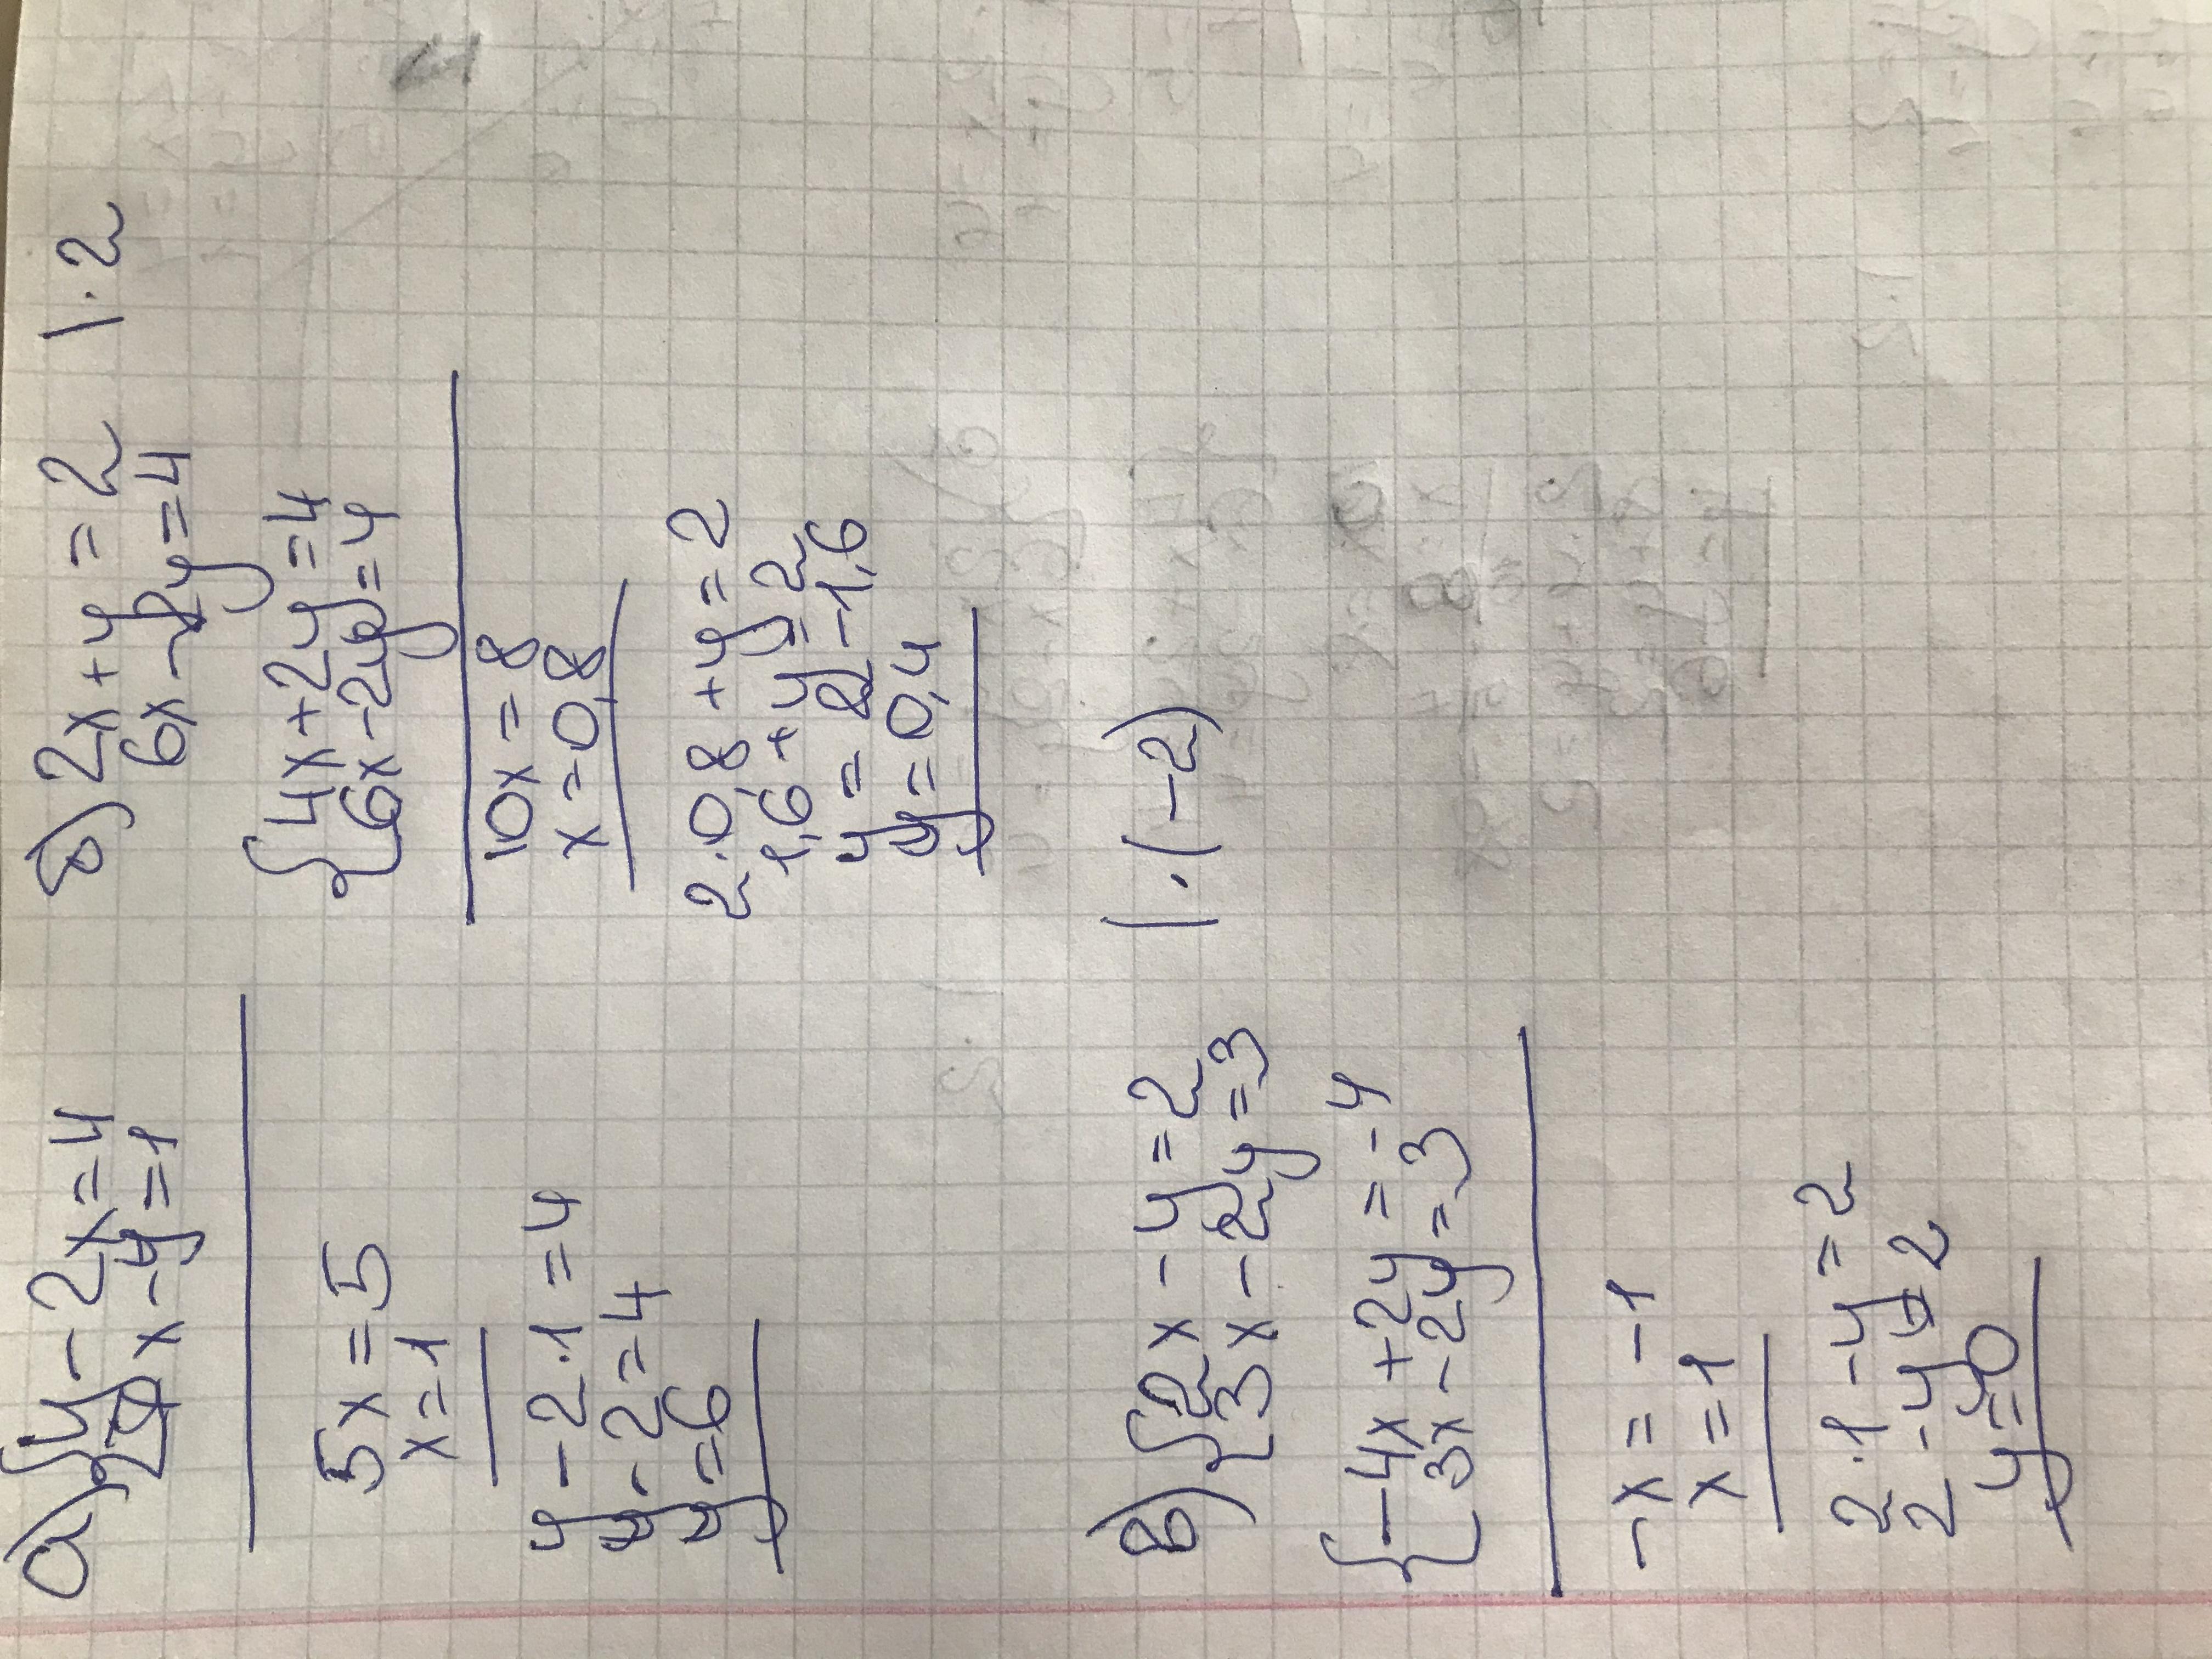 а) { y - 2x = 4
7x - y = 1
5x = 5
x = 1
y - 2 · 1 = 4
y - 2 = 4
y = 6
б) 2x + y = 2 | · 2
6x - 2y = 4
{ 4x + 2y = 4
6x - 2y = 4
10x = 8
x = 0,8
2 · 0,8 + y = 2
1,6 + y = 2
y = 2 - 1,6
y = 0,4
в) { 2x - y = 2 | · (-2)
3x - 2y = 3
{ -4x + 2y = -4
3x - 2y = 3
-x = -1
x = 1
2 · 1 - y = 2
2 - y = 2
y = 0